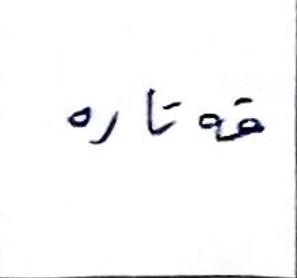 قه تاره